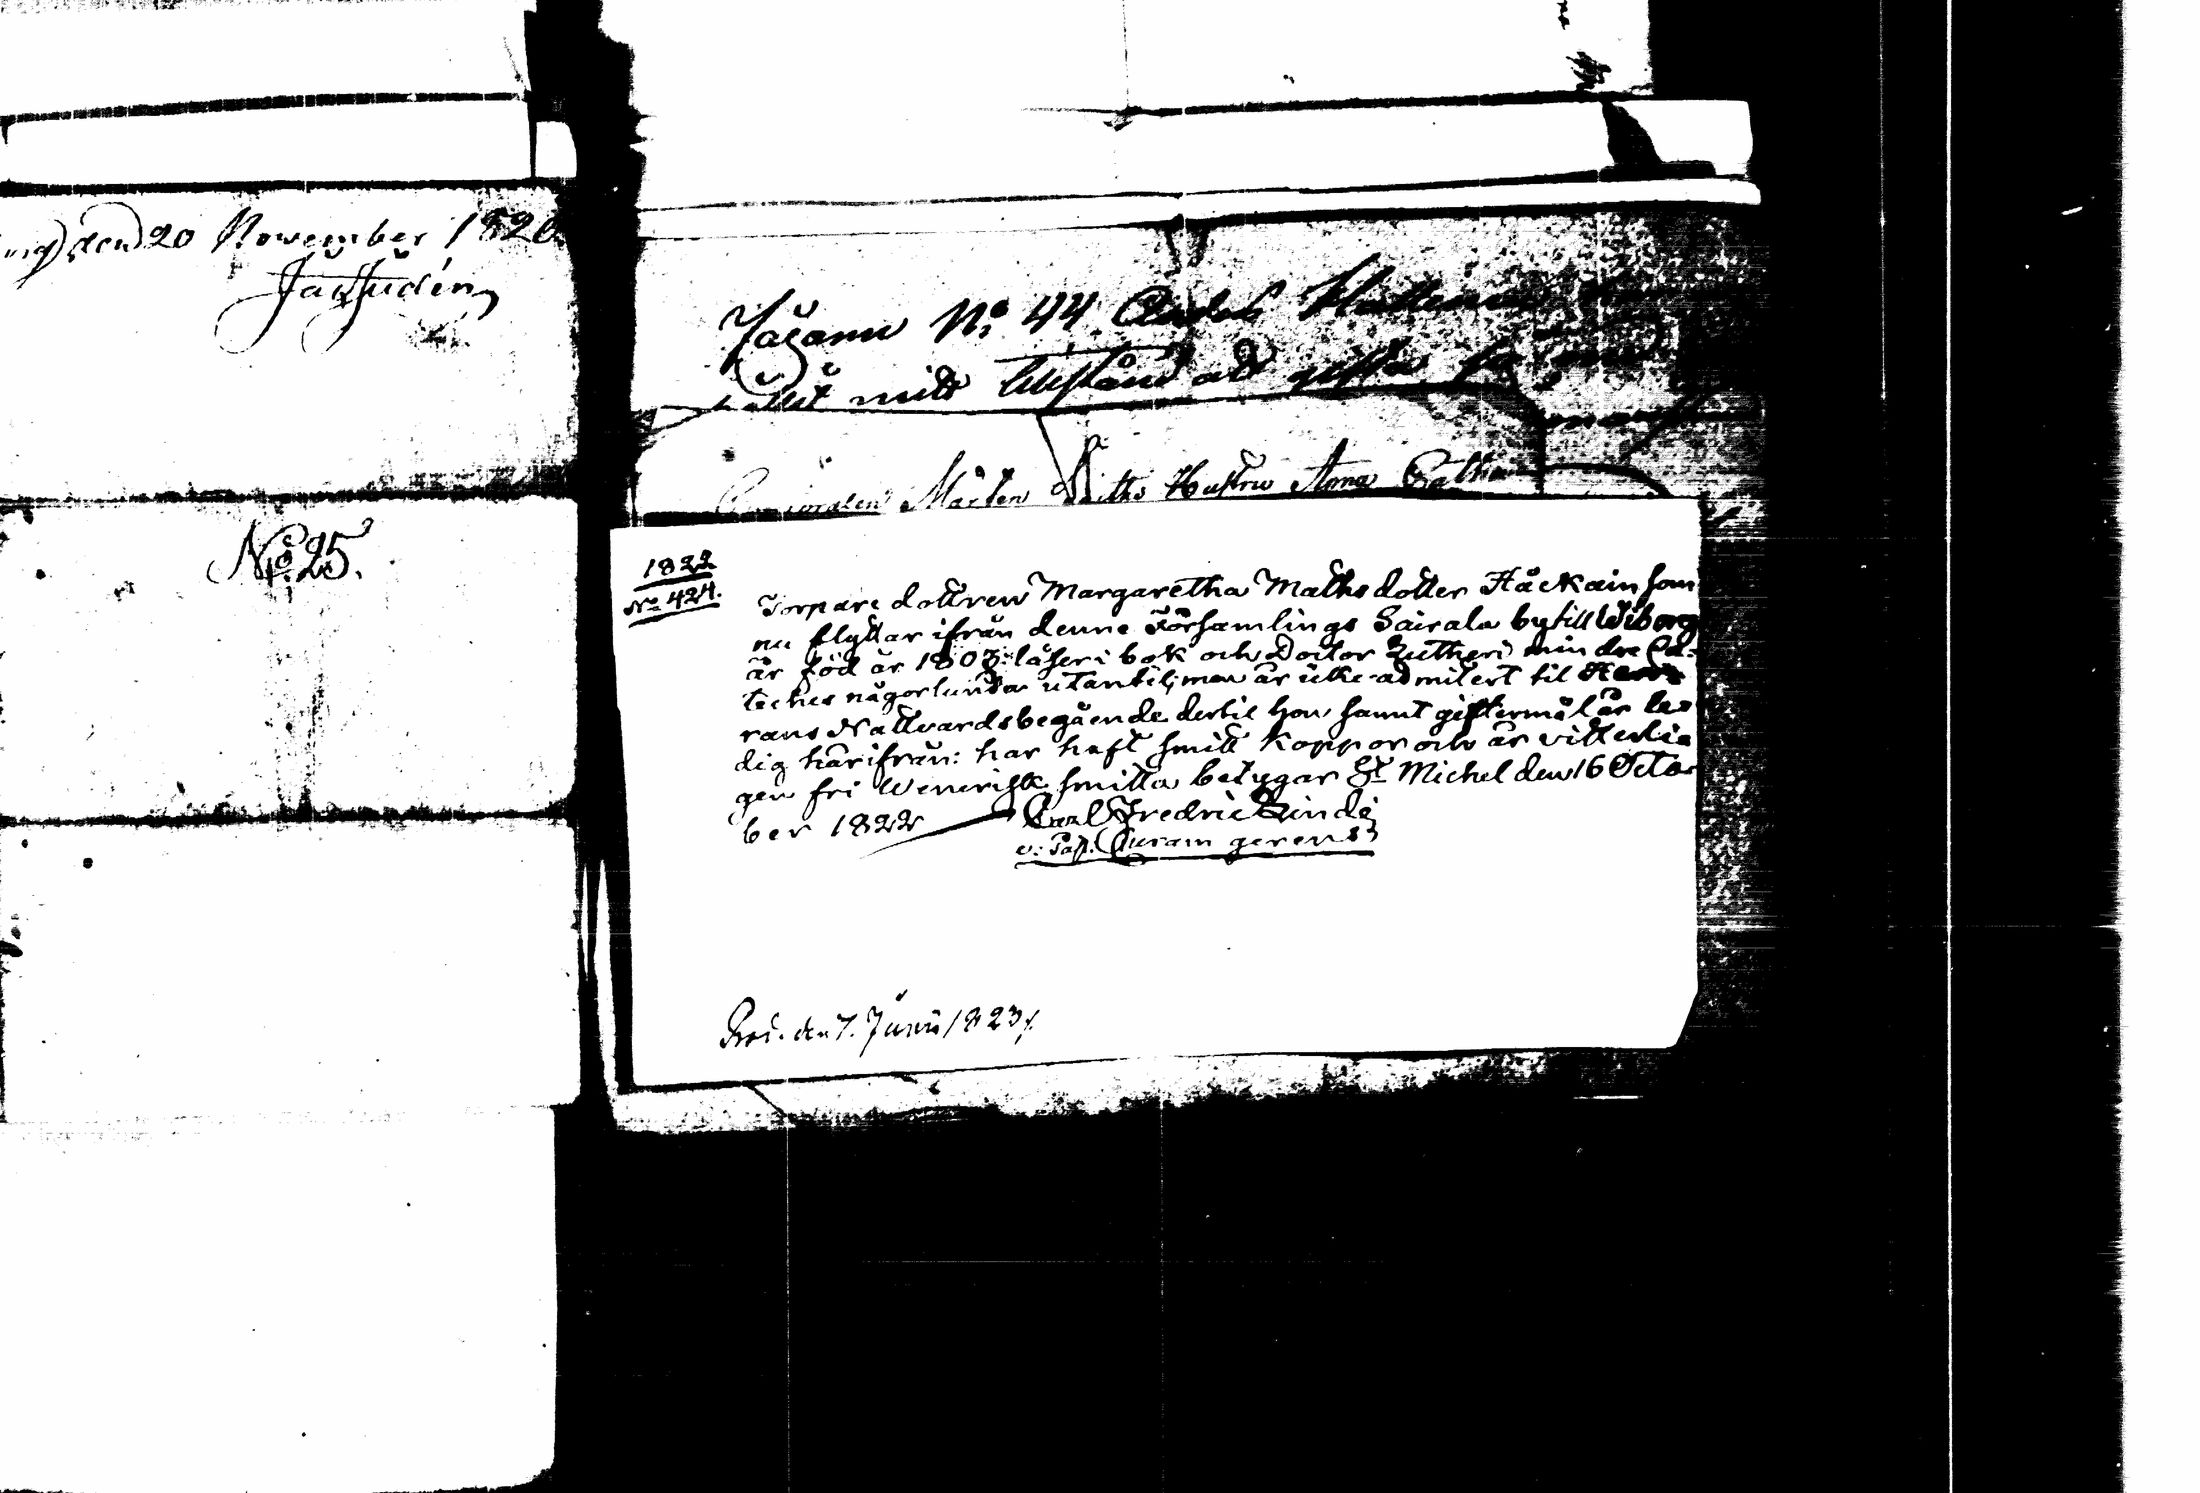 den 20 November 1820.
No 25.
Jägaren No 44
mitt tillstånd att gifta
Mårten Hustru Anna
1822
No 424.
Torpare dottren Margaretha Mathsdotter Häckain som
nu flyttar ifrån denne Församlings Sairala by till Wiborg
är född år 1803: läser i bok och Doctor Lutheri mindre Ca-
teches någorlunda utantil; men är icke admitert til Her-
rans Nattvards begående dertil hon samt giftermål är le-
dig härifrån: har haft smitt koppor och är vitterli-
gen fri Wenerisk smitta betygar St Michel den 16 Octo-
ber 1822 Carl Fredric Linde
v: Past. Curam gerens
Prod. den 7. Junii 1823